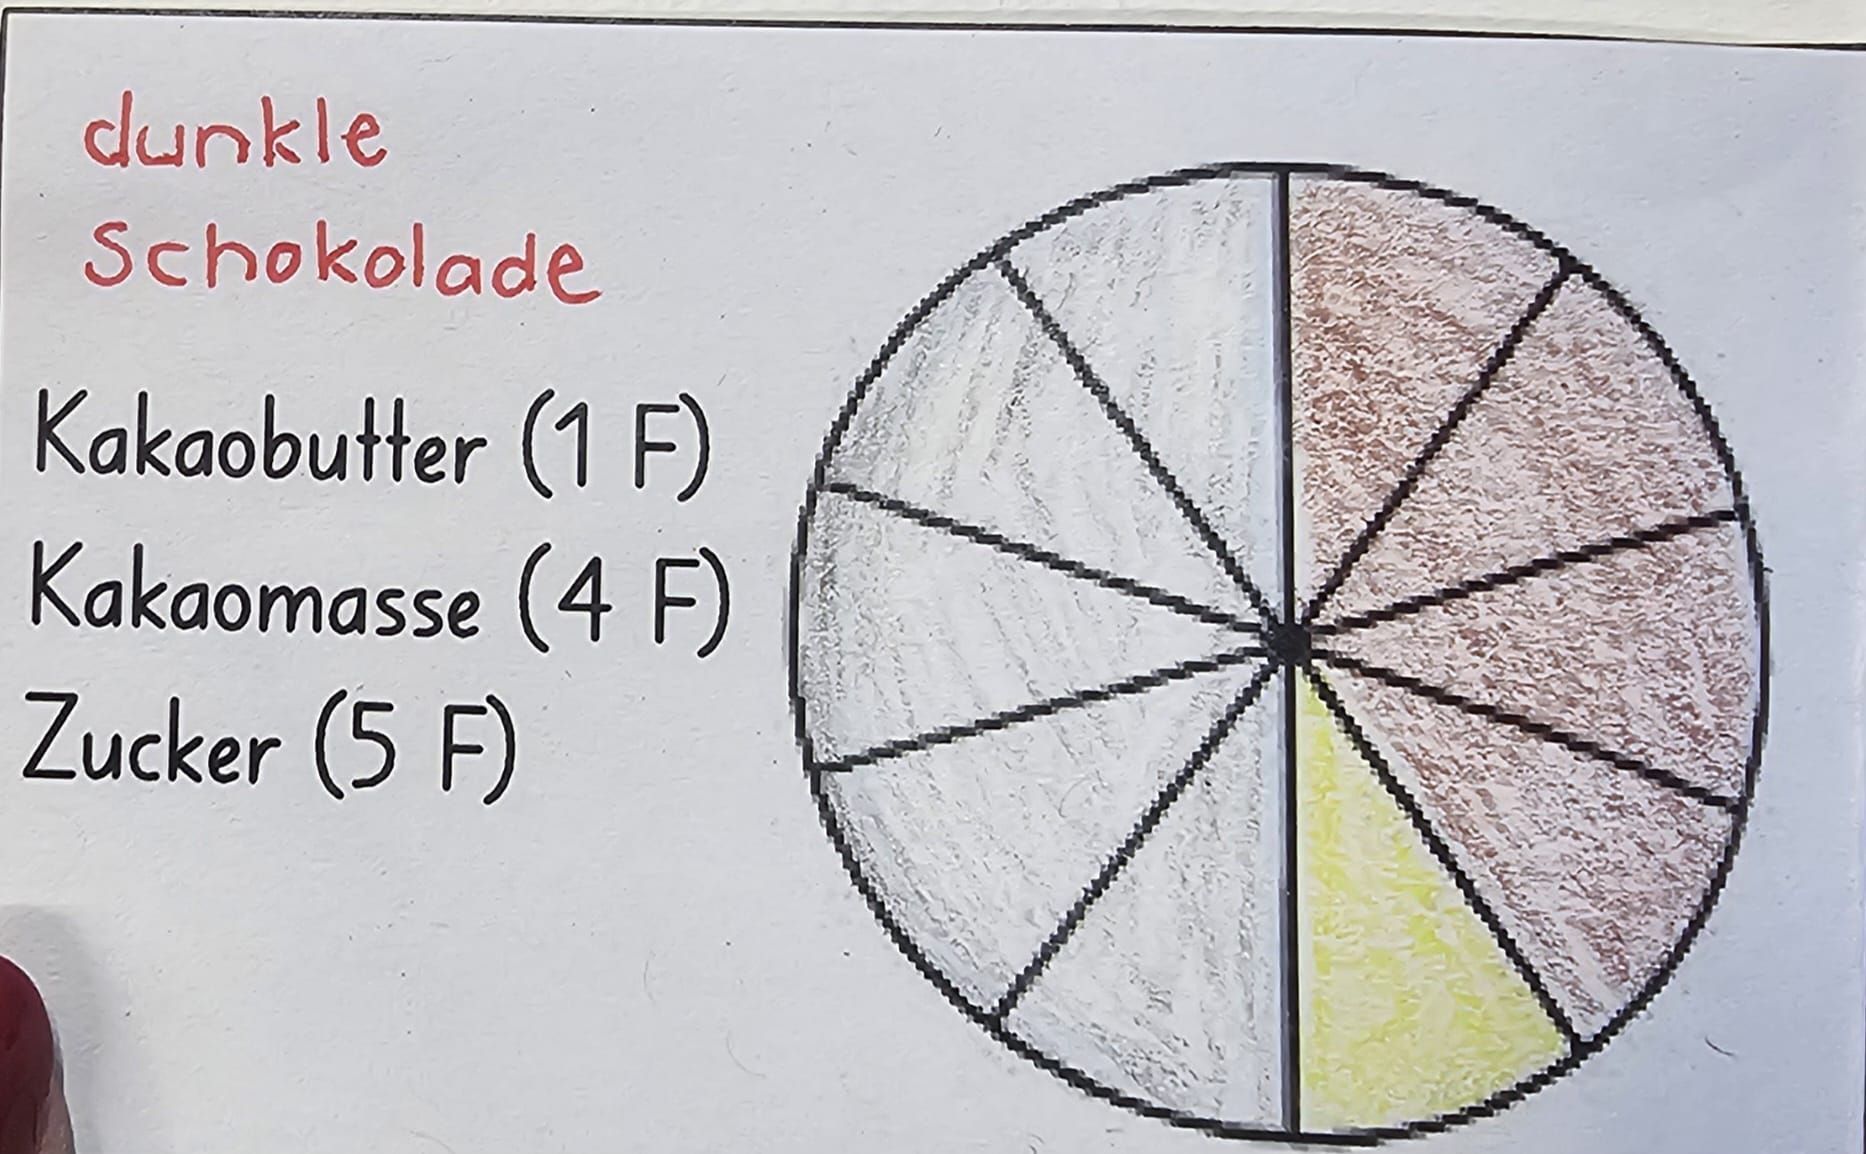 dunkle
Schokolade
Kakaobutter (1 F)
Kakaomasse (4 F)
Zucker (5 F)